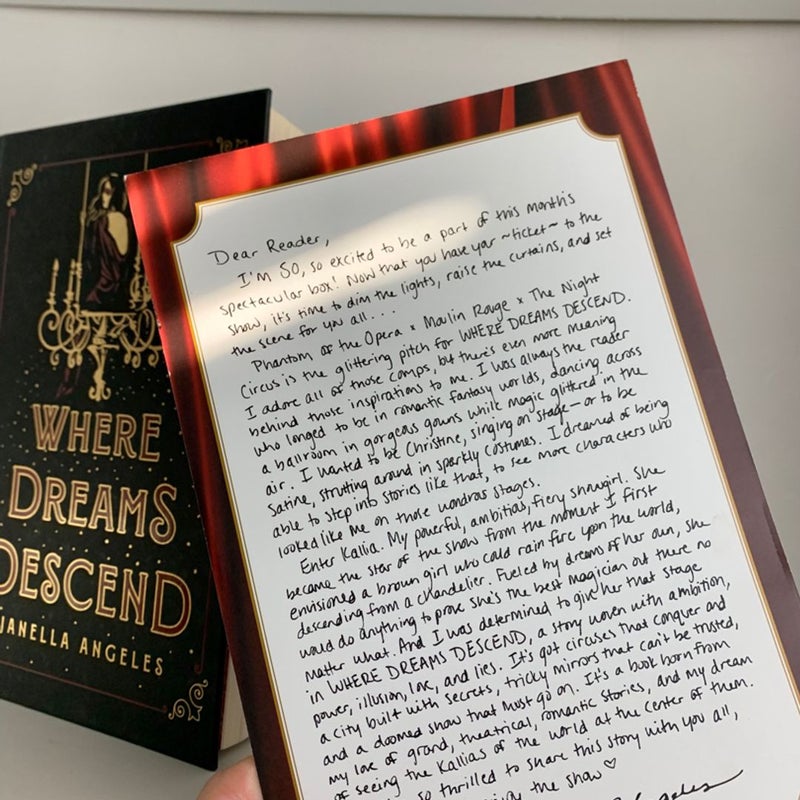 WHERE
DREAMS
DESCEND
JANELLA ANGELES
Dear Reader,
I'm SO, so excited to be a part of this month's
spectacular box! Now that you have your ~ticket~ to the
show, it's time to dim the lights, raise the curtains, and set
the scene for you all...
Phantom of the Opera x Moulin Rouge x The Night
Circus is the glittering pitch for WHERE DREAMS DESCEND.
I adore all of those comps, but there's even more meaning
behind those inspirations to me. I was always the reader
who longed to be in romantic fantasy worlds, dancing across
a ballroom in gorgeous gowns while magic glittered in the
air. I wanted to be Christine, singing on stage—or to be
Satine, strutting around in sparkly costumes. I dreamed of being
able to step into stories like that, to see more characters who
looked like me on those wondrous stages.
Enter Kallia. My powerful, ambitious, fiery showgirl. She
became the star of the show from the moment I first
envisioned a brown girl who could rain fire upon the world,
descending from a chandelier. Fueled by dreams of her own, she
would do anything to prove she's the best magician out there no
matter what. And I was determined to give her that stage
in WHERE DREAMS DESCEND, a story woven with ambition,
power, illusion, love, and lies. It's got circuses that conquer and
a city built with secrets, tricky mirrors that can't be trusted,
and a doomed show that must go on. It's a book born from
my love of grand, theatrical, romantic stories, and my dream
of seeing the Kallias of the world at the center of them.
so thrilled to share this story with you all,
the show ♡
Angeles